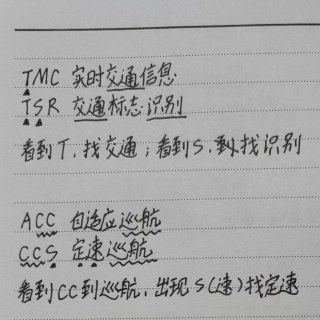 TMC 实时交通信息
TSR 交通标志识别
看到T,找交通;看到S,找识别
ACC 自适应巡航
CCS 定速巡航
看到CC到巡航,出现S(速)找定速